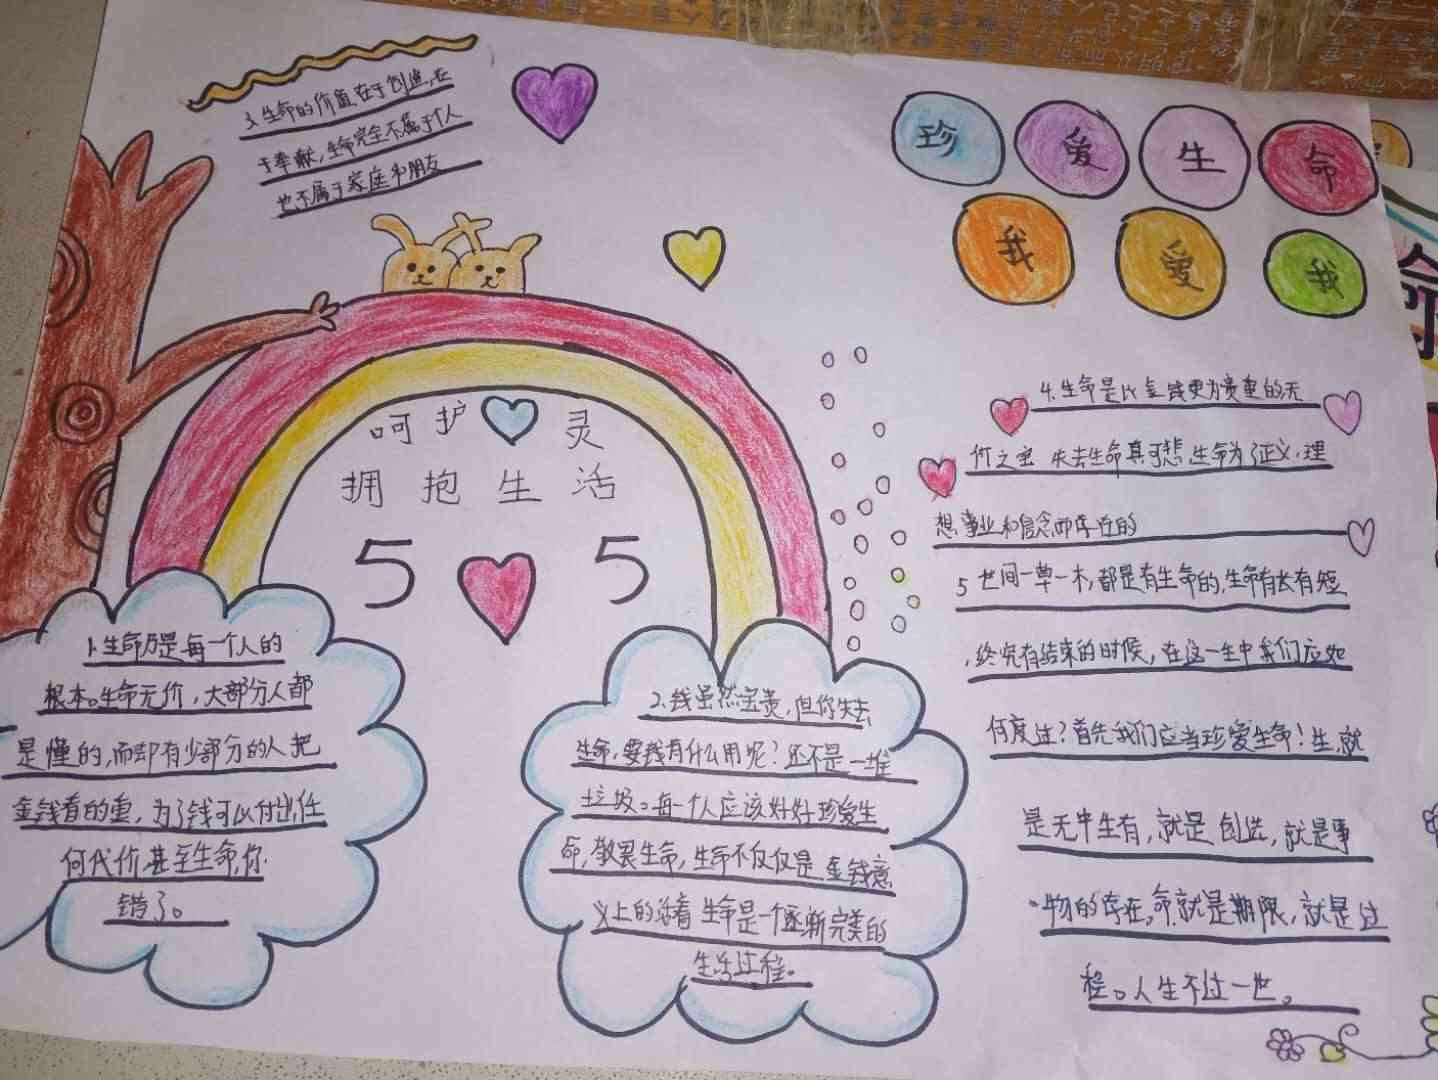 珍爱生命
我爱我
3.生命的价值在于创造,在
于奉献,生命完全不属于个人
也不属于家庭和朋友
呵护 灵
拥抱生活
5 5
1.生命乃是每一个人的
根本。生命无价,大部分人都
是懂的,而却有少部分的人把
金钱看的重,为了钱可以付出任
何代价甚至生命,你
错了。
2.钱虽然宝贵,但你失去
生命,要钱有什么用呢?还不是一堆
垃圾。每一个人应该好好珍爱生
命,敬畏生命,生命不仅仅是金钱意
义上的活着 生命是一个逐渐完美的
生活过程。
4.生命是比金钱更为贵重的无
价之宝 失去生命真可悲,生命为了正义,理
想 事业和信念而存在的
5 世间一草一木,都是有生命的,生命有长有短
,终究有结束的时候,在这一生中我们应如
何度过?首先我们应当珍爱生命!生,就
是无中生有,就是创造,就是事
物的存在,命就是期限,就是过
程。人生不过一世。